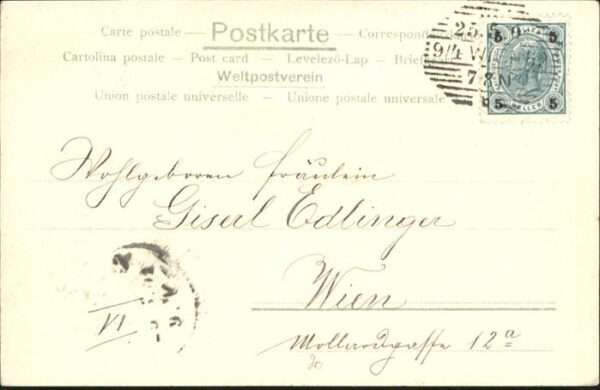 Carte postale — Postkarte — Correspond
Cartolina postale — Post card — Levelező-Lap — Brief
Weltpostverein
Union postale universelle — Unione postale universale
25.5
9/4 W
7-8N
5 5
5 5
HELLER
Wohlgeboren Fräulein
Giserl Edlinger
Wien
VI
Mollardgasse 12a